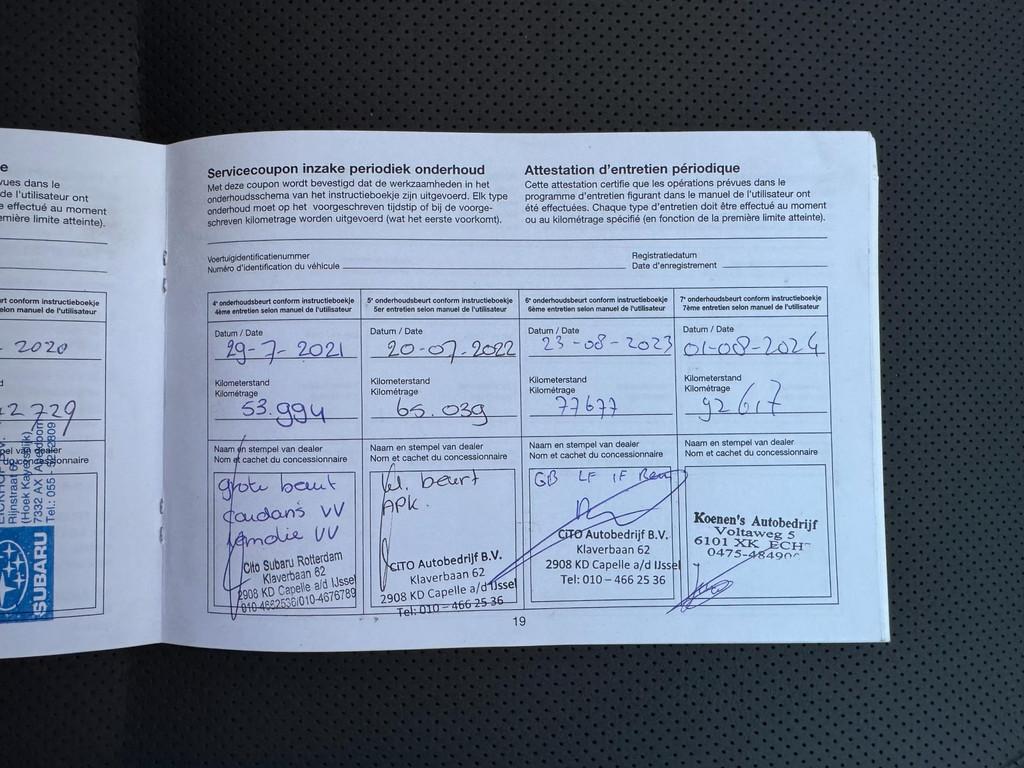 e
vues dans le
de l'utilisateur ont
e effectué au moment
emière limite atteinte).
rt conform instructieboekje
elon manuel de l'utilisateur
- 2020
2729
Rijnstraat
(Hoek Kayersdijk)
7332 AX Apeldoorn
Tel.: 055 -
SUBARU
Servicecoupon inzake periodiek onderhoud
Met deze coupon wordt bevestigd dat de werkzaamheden in het
onderhoudsschema van het instructieboekje zijn uitgevoerd. Elk type
onderhoud moet op het voorgeschreven tijdstip of bij de voorge-
schreven kilometrage worden uitgevoerd (wat het eerste voorkomt).
Attestation d'entretien périodique
Cette attestation certifie que les opérations prévues dans le
programme d'entretien figurant dans le manuel de l'utilisateur ont
été effectuées. Chaque type d'entretien doit être effectué au moment
ou au kilométrage spécifié (en fonction de la première limite atteinte).
Voertuigidentificatienummer
Numéro d'identification du véhicule
Registratiedatum
Date d'enregistrement
4e onderhoudsbeurt conform instructieboekje
4ème entretien selon manuel de l'utilisateur
Datum / Date
29-7-2021
Kilometerstand
Kilométrage
53.994
Naam en stempel van dealer
Nom et cachet du concessionnaire
grote beurt
VV
VV
Cito Subaru Rotterdam
Klaverbaan 62
2908 KD Capelle a/d IJssel
010-4662536/010-4676789
5e onderhoudsbeurt conform instructieboekje
5er entretien selon manuel de l'utilisateur
Datum / Date
20-07-2022
Kilometerstand
Kilométrage
65.039
Naam en stempel van dealer
Nom et cachet du concessionnaire
kl. beurt
APK.
CITO Autobedrijf B.V.
Klaverbaan 62
2908 KD Capelle a/d IJssel
Tel: 010 – 466 25 36
6e onderhoudsbeurt conform instructieboekje
6ème entretien selon manuel de l'utilisateur
Datum / Date
23-08-2023
Kilometerstand
Kilométrage
77677
Naam en stempel van dealer
Nom et cachet du concessionnaire
GB LF IF
CITO Autobedrijf B.V.
Klaverbaan 62
2908 KD Capelle a/d IJssel
Tel: 010 – 466 25 36
7e onderhoudsbeurt conform instructieboekje
7ème entretien selon manuel de l'utilisateur
Datum / Date
01-08-2024
Kilometerstand
Kilométrage
92617
Naam en stempel van dealer
Nom et cachet du concessionnaire
Koenen's Autobedrijf
Voltaweg 5
6101 XK ECHT
0475-48490
19